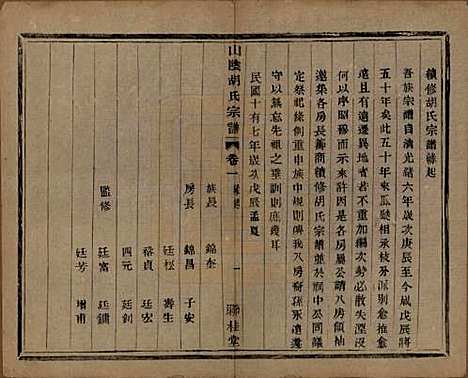 續修胡氏宗譜緣起
吾族宗譜自清光緒六年歲次庚辰至今歲戊辰將
五十年矣此五十年來瓜瓞相承枝分派別愈推愈
遠且有遠遷異地者若不重加編次勢必散失湮沒
何以序昭穆而示來許因是各房屬公請八房領袖
邀集各房長籌商續修胡氏宗譜並於祠中公同議
定祭祀條例重申族中規則俾我八房裔孫永遠遵
守以無忘先祖之垂訓則庶幾耳
民國十有七年歲次戊辰孟夏
山陰胡氏宗譜 卷一 緣起 一 聯桂堂
族長 錦奎
房長 錦昌 子安
廷松 壽生
裕貞 廷宏
四元 廷釗
監修 廷富 廷鏞
廷芳 增甫